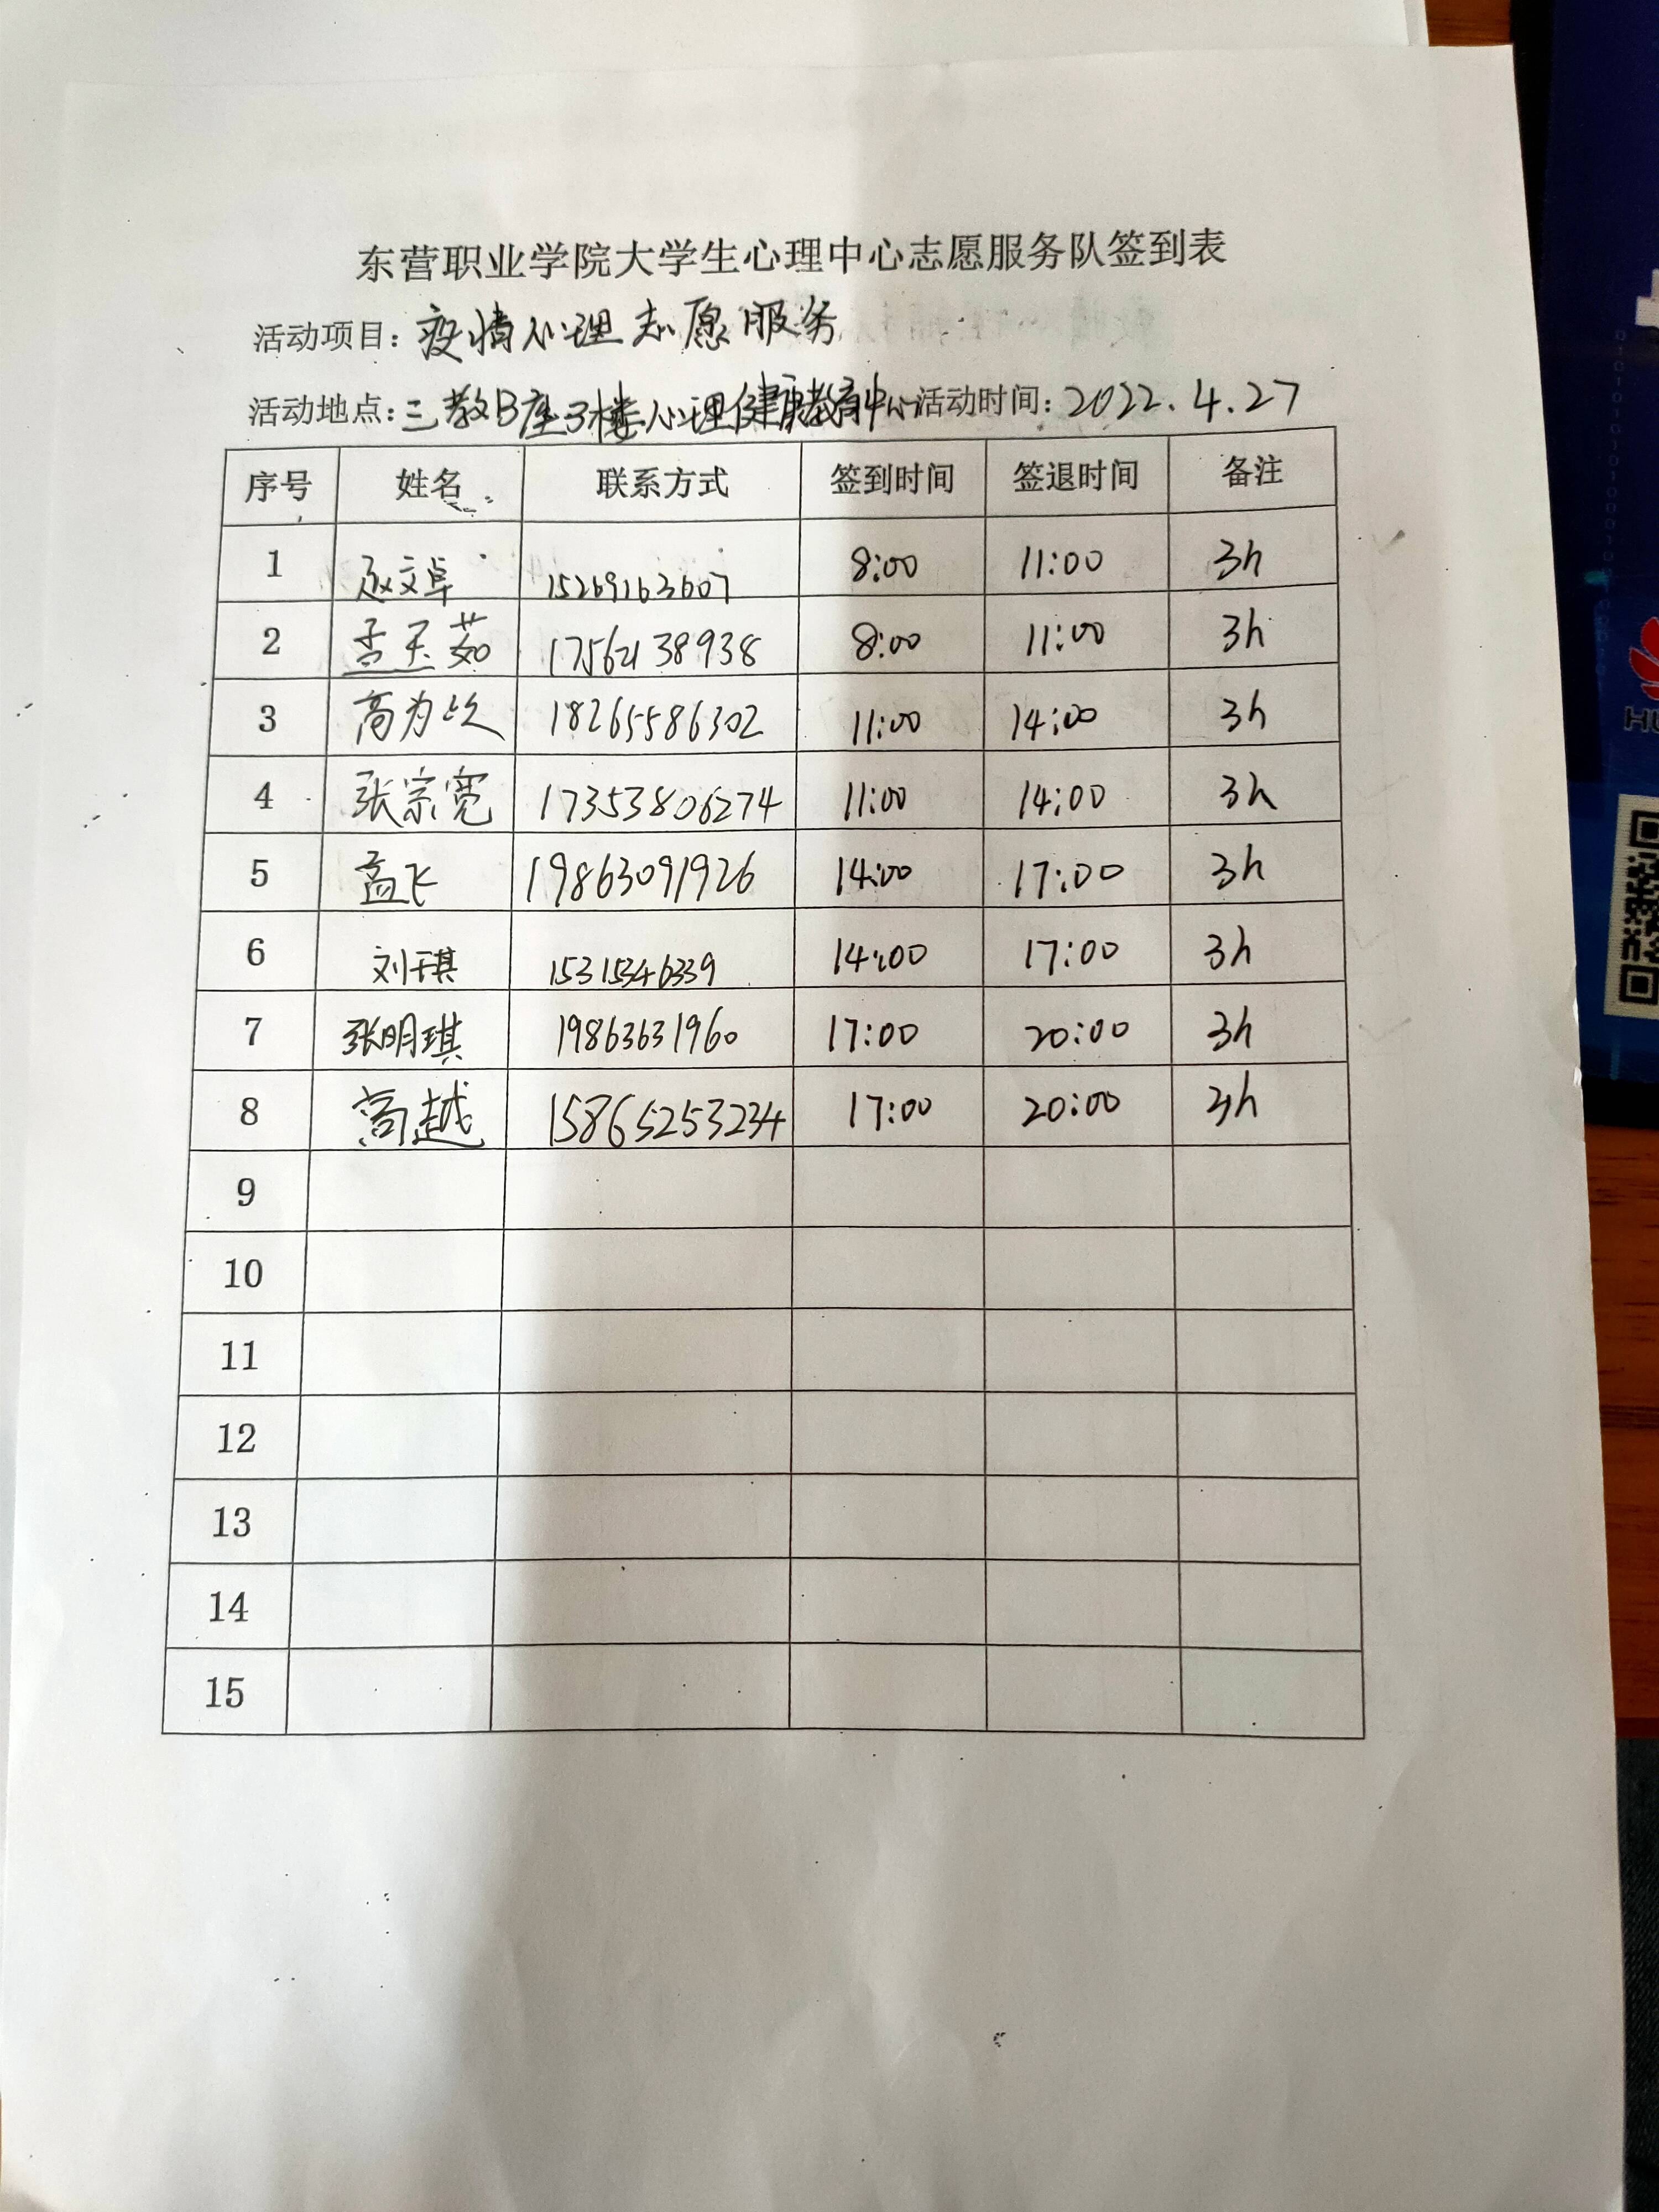 东营职业学院大学生心理中心志愿服务队签到表
活动项目：疫情心理志愿服务
活动地点：三教B座3楼心理健康教育中心 活动时间：2022.4.27
序号 姓名 联系方式 签到时间 签退时间 备注
1 赵文卓 15269163607 8:00 11:00 3h
2 李玉茹 17562138938 8:00 11:00 3h
3 高为 18265586302 11:00 14:00 3h
4 张宗宽 17353806274 11:00 14:00 3h
5 孟飞 19863091926 14:00 17:00 3h
6 刘琪 15315346339 14:00 17:00 3h
7 张明琪 19863631960 17:00 20:00 3h
8 高越 15865253234 17:00 20:00 3h
9
10
11
12
13
14
15